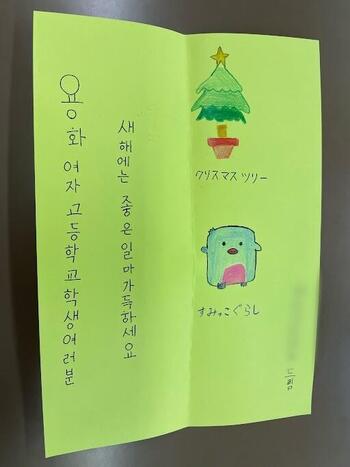 용화 여자 고등학교 학생 여러분
새해에는 좋은 일 마가득하세요
クリスマスツリー
すみっこぐらし
드림